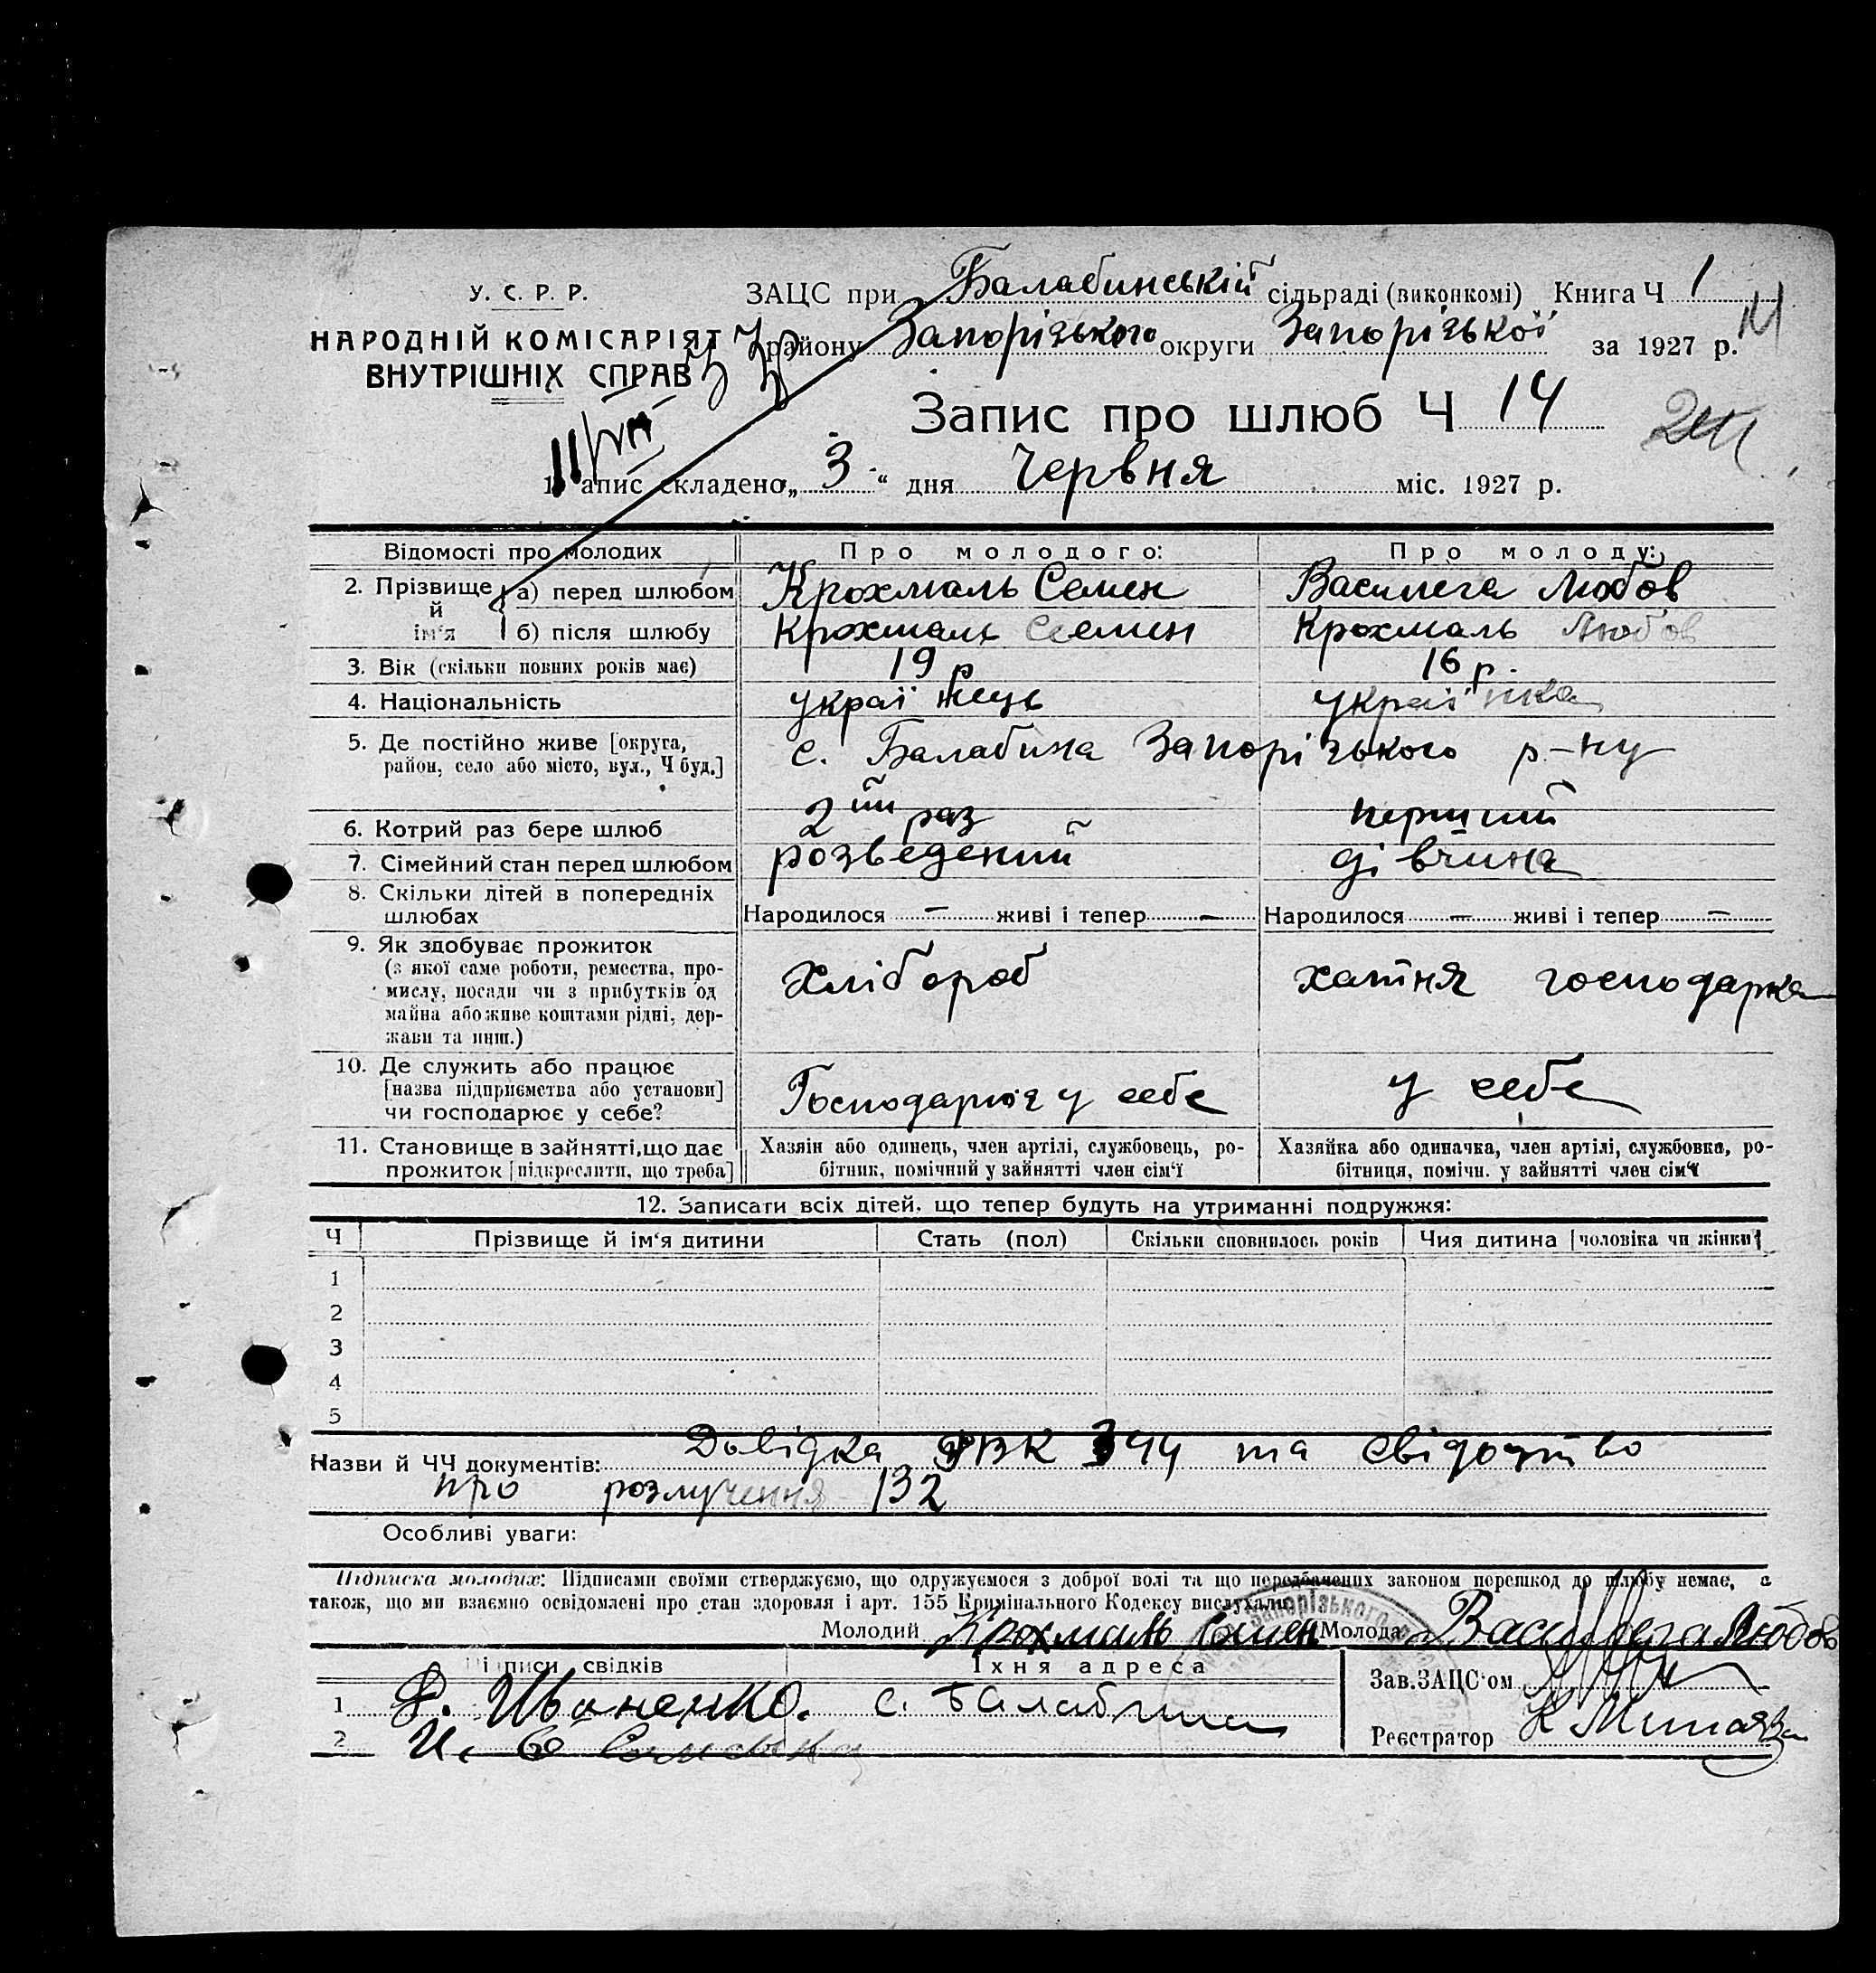 У. С. Р. Р.
НАРОДНІЙ КОМІСАРІЯТ
ВНУТРІШНІХ СПРАВ
ЗАЦС при Балабинській сільраді (виконкомі) Книга Ч 1
району Запорізького округи Запорізької за 1927 р.
Запис про шлюб Ч 14
11/VII
1. апис складено „ 3 “ дня Червня міс. 1927 р.
Відомості про молодих Про молодого: Про молоду:
2. Прізвище й ім'я а) перед шлюбом Крохмаль Семен Василега Любов
б) після шлюбу Крохмаль Семен Крохмаль Любов
3. Вік (скільки повних років має) 19 р 16 р.
4. Національність украї нець украї нка
5. Де постійно живе [округа, район, село або місто, вул., Ч буд.] с. Балабина Запорізького р-ну
6. Котрий раз бере шлюб 2ий раз перший
7. Сімейний стан перед шлюбом розведений дівчина
8. Скільки дітей в попередніх шлюбах Народилося — живі і тепер — Народилося — живі і тепер —
9. Як здобуває прожиток
(з якої саме роботи, ремества, про-
мислу, посади чи з прибутків од
майна або живе коштами рідні, дер-
жави та инш.)
Хлібороб хатня господарка
10. Де служить або працює
[назва підприємства або установи]
чи господарює у себе?
Господарює у себе у себе
11. Становище в зайнятті, що дає
прожиток [підкреслити, що треба]
Хазяін або одинець, член артілі, службовець, ро-
бітник, помічний у зайнятті член сім'ї
Хазяйка або одиначка, член артілі, службовка, ро-
бітниця, помічн. у зайнятті член сім'ї
12. Записати всіх дітей, що тепер будуть на утриманні подружжя:
Ч Прізвище й ім'я дитини Стать (пол) Скільки сповнилось років Чия дитина [чоловіка чи жінки]
1
2
3
4
5
Назви й ЧЧ документів: Довідка РВК 344 та свідоцтво
про розлучення 132
Особливі уваги:
Підписка молодих: Підписами своїми стверджуємо, що одружуємося з доброї волі та що передбачених законом перешкод до шлюбу немає, а
також, що ми взаємно освідомлені про стан здоровля і арт. 155 Кримінального Кодексу вислухали.
Молодий Крохмаль Семен Молода Василега Любов
Підписи свідків Їхня адреса
Зав. ЗАЦС'ом
1 Іваненко. с. Балабина
2
Реєстратор
Запорізького